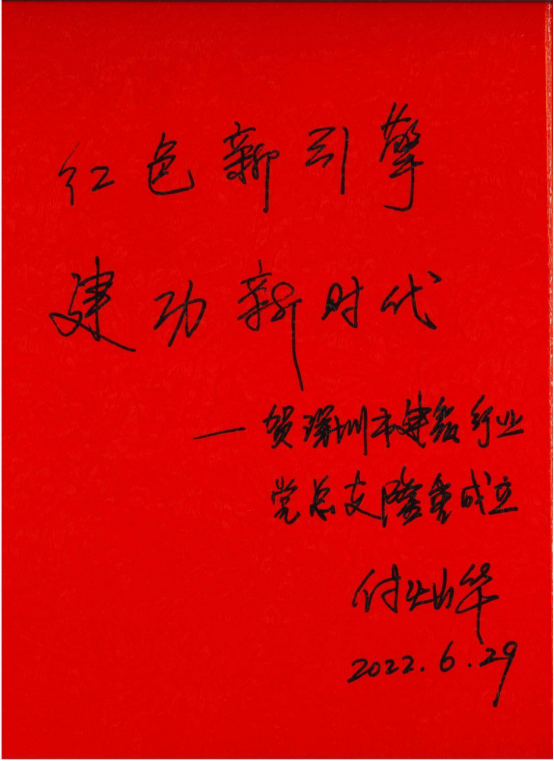 红色新引擎
建功新时代
—贺深圳市建设行业
党总支隆重成立
付灿华
2022.6.29